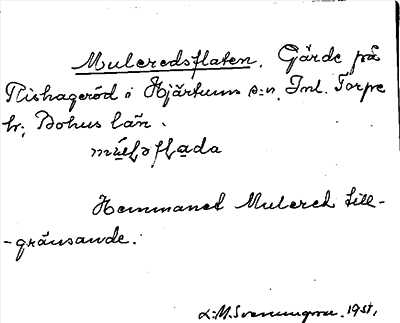 Muleredsflaten. Gärde på
Rishageröd i Hjärtums s:n, Inl. Torpe
hr; Bohus län.
Hemmanet Mulered till-
-gränsande.
L:M. Svenungsson. 1931,